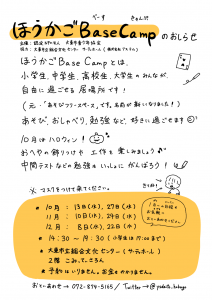 ほうかごBaseCampのおしらせ
べーす きゃんぷ
ほうかごBase Campとは、
小学生、中学生、高校生、大学生のみんなが、
自由に過ごせる居場所です!
(元・「あそびつうスペース」です。名前が新しくなりました!)
あそび、おしゃべり、勉強など、好きに過ごせます
10月はハロウィン!
おやつの飾りつけや工作を楽しみましょう♪
中間テストなどの勉強もいっしょにがんばろう!
※マスクをつけて来てください。
● 10月:13日(水)、27日(水)
11月:10日(水)、24日(水)
12月:8日(水)、22日(水)
● 14:30〜19:30(小学生は17:00まで)
● 大東市立総合文化センター(サーティホール)
2階 こみゅーてぃるーむ
● 予約はいりません。お金もかかりません。
おといあわせ→072-874-5165/Twitter→